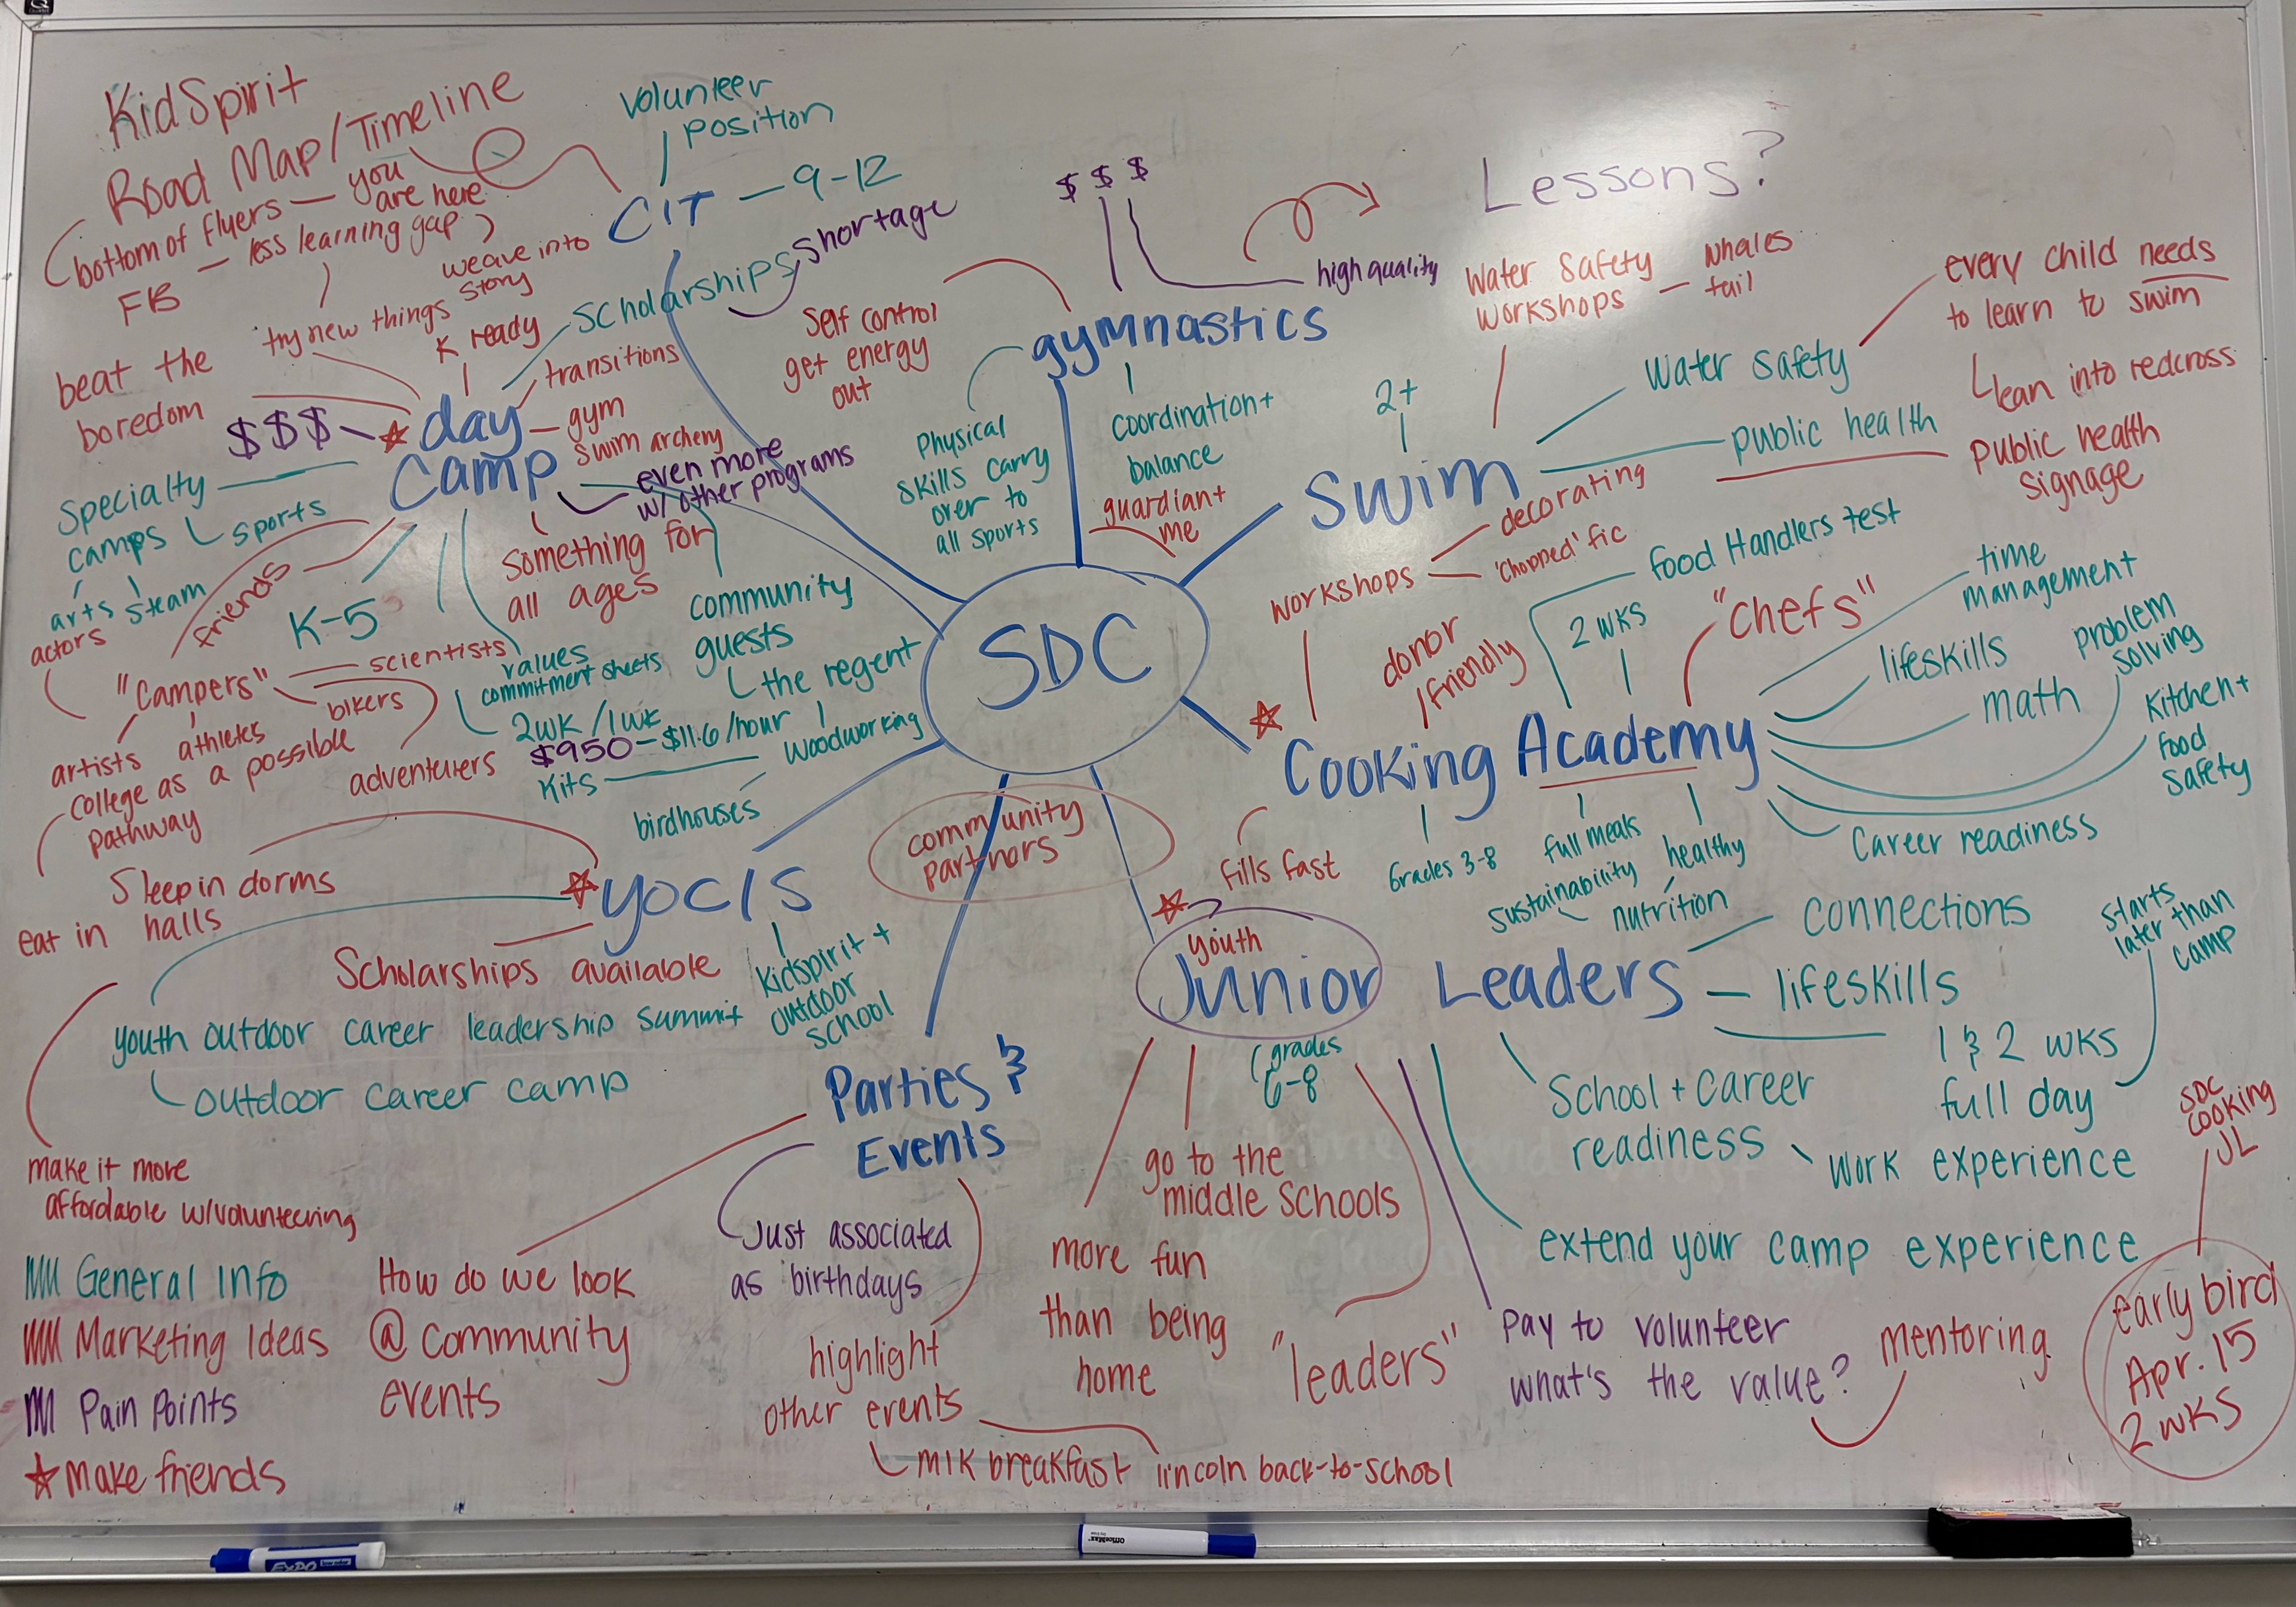 KidSpirit
Road Map/Timeline
(bottom of flyers — you
are here
FB — less learning gap)
try new things
weave into
story
K ready
beat the
boredom
$$$
day
Camp
scholarships
shortage
transitions
gym
swim archery
even more
w/ other programs
something for
all ages
Specialty
camps
sports
arts
steam
actors
friends
K-5
"campers"
scientists
bikers
artists
athletes
adventurers
values
commitment sheets
2wk/1wk
$950-$11.6/hour
Kits
woodworking
birdhouses
community
guests
the regent
volunteer
position
CIT — 9-12
$ $ $
high quality
gymnastics
Self control
get energy
out
Physical
skills carry
over to
all sports
coordination+
balance
guardian+
me
Lessons?
Water Safety
workshops — whales
tail
2+
Swim
water safety
every child needs
to learn to swim
lean into redcross
public health
public health
signage
SDC
workshops
decorating
'Chopped' fic
donor
friendly
food Handlers test
2 wks
"chefs"
time
management
lifeskills
problem
solving
math
Kitchen+
food
safety
Career readiness
Cooking Academy
Grades 3-8
full meals
healthy
sustainability
nutrition
college as a possible
pathway
Sleep in dorms
eat in halls
yocls
Scholarships available
youth outdoor career leadership summit
outdoor career camp
Kidspirit +
outdoor
school
make it more
affordable w/volunteering
community
partnors
Parties &
Events
Just associated
as birthdays
highlight
other events
MLK breakfast
lincoln back-to-school
How do we look
@ community
events
fills fast
youth
Junior Leaders
grades
6-8
connections
lifeskills
1 & 2 wks
full day
starts
later than
camp
School + career
readiness
work experience
extend your camp experience
go to the
middle schools
more fun
than being
home
"leaders"
Pay to volunteer
what's the value?
mentoring
SDC
cooking
JL
early bird
Apr. 15
2 wks
General Info
Marketing Ideas
Pain Points
make friends
EXPO
OfficeMax